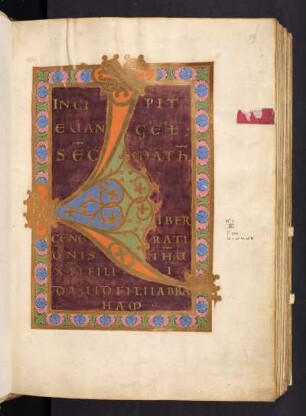 INCI PIT
EVAN GELI
SEC MATH
LIBER
GENE RATI
ONIS IHU
XPI FILI I
DAVID FILII ABRA
HAM